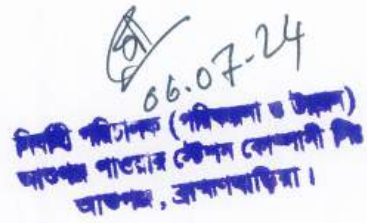 06.07-24
নির্বাহী পরিচালক (পরিকল্পনা ও উন্নয়ন)
আশুগঞ্জ পাওয়ার স্টেশন কোম্পানী লিঃ
আশুগঞ্জ, ব্রাহ্মণবাড়িয়া।